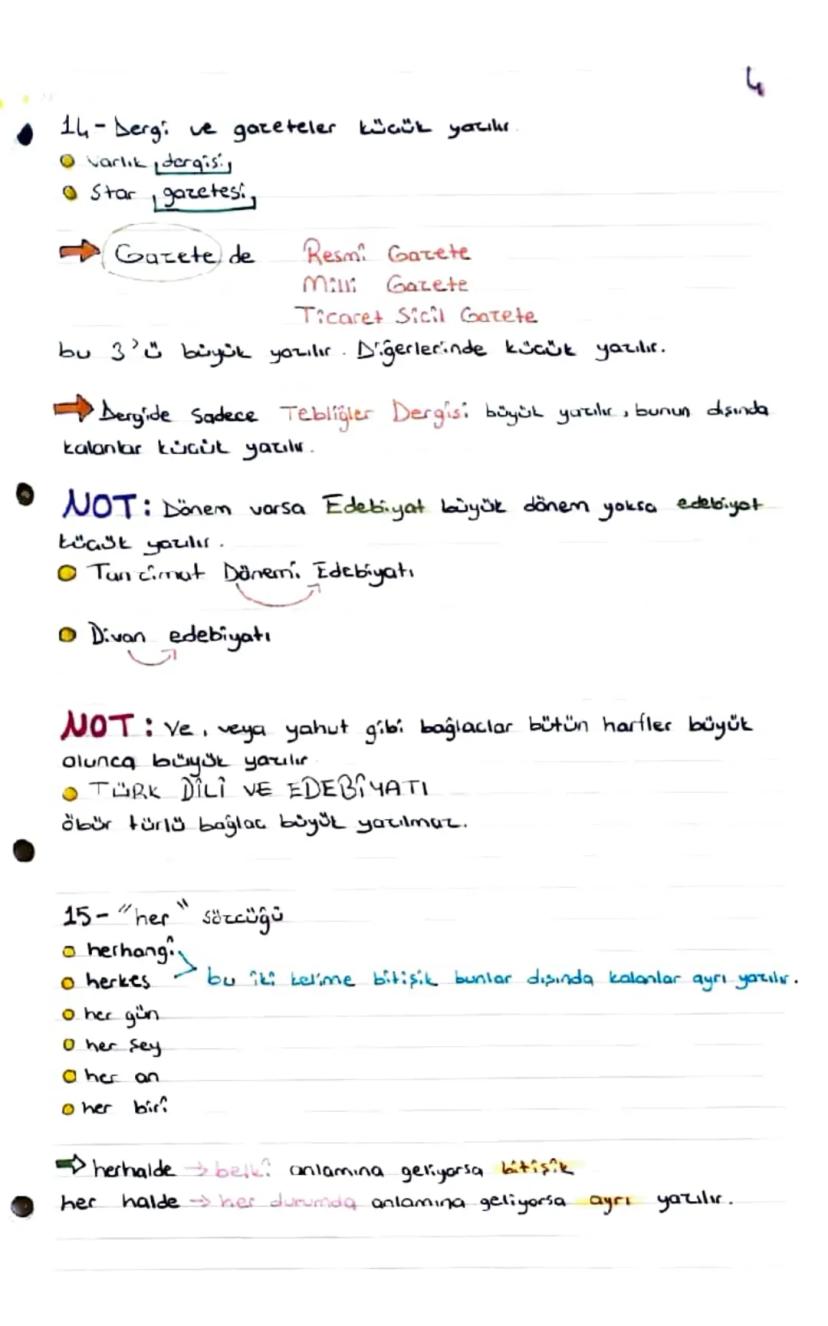 4
14- Dergi ve gazeteler küçük yazılır.
Varlık dergisi
Star gazetesi
Gazete de Resmi Gazete
Milli Gazete
Ticaret Sicil Gazete
bu 3'ü büyük yazılır. Diğerlerinde küçük yazılır.
Dergide sadece Tebliğler Dergisi büyük yazılır, bunun dışında
kalanlar küçük yazılır.
NOT: Dönem varsa Edebiyat büyük dönem yoksa edebiyat
küçük yazılır.
Tanzimat Dönemi Edebiyatı
Divan edebiyatı
NOT: Ve, veya yahut gibi bağlaclar bütün harfler büyük
olunca büyük yazılır
TÜRK DİLİ VE EDEBİYATI
öbür türlü bağlac büyük yazılmaz.
15- "her" sözcüğü
herhangi
herkes bu iki kelime bitişik bunlar dışında kalanlar ayrı yazılır.
her gün
her şey
her an
her biri
herhalde → belki anlamına geliyorsa bitişik
her halde → her durumda anlamına geliyorsa ayrı yazılır.